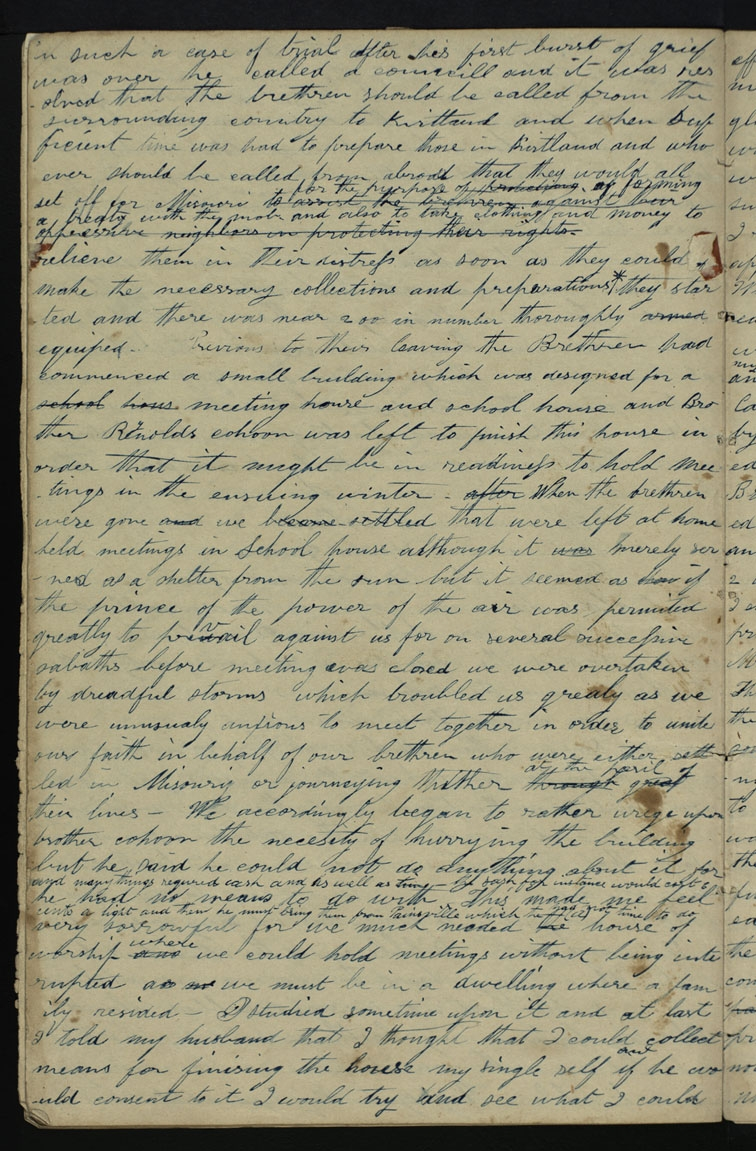 in such a case of trial after his first burst of grief
was over he called a councill and it was res
-olved that the brethren should be called from the
surrounding country to Kirtland and when suf
ficient time was had to prepare those in Kirtland and who
ever should be called from abroad that they would all
for the purpose of forming
set off for Missouri to assist the brethren against their
a treaty with the mob and also to take clothing and money to
oppressive neighbors in protecting their rights-
relieve them in their distress as soon as they could
make the necessary collections and preparations* they star
ted and there was near 200 in number thoroughly armed
equiped- Previous to theis leaving the Brethren had
commenced a small building which was designed for a
school hous meeting house and school house and Bro
ther Renolds cohoon was left to finish this house in
order that it might be in readiness to hold mee
-tings in the ensuing winter- after When the brethren
were gone and we became settled that were left at home
held meetings in School house although it was merely ser
-ned as a shelter from the sun but it seemed as if
the prince of the power of the air was permited
greatly to prevail against us for on several successive
sabaths before meeting was closed we were overtaken
by dreadful storms which troubled us grealy as we
were unusualy anxious to meet together in order to unite
our faith in behalf of our brethren who were either sett
at the peril of
led in Misouri or journeying thither through great
their lives- We accordingly began to rather urge upon
brother cohoon the necesety of hurrying the building
but he said he could not do anything about it for
and many things required cash and as well as time- sash for instance would cost
he had no means to do with This made me feel
cents a light and then he must bring them from Painsville which he had not time to do
very sorrowful for we much needed house of
where
worship and we could hold meetings without being inte
rupted as we must be in a dwelling where a fam
ily resided- I studied sometime upon it and at last
I told my husband that I thought that I could collect
means for finising the house my single self if he wo
-uld consent to it I would try and see what I could